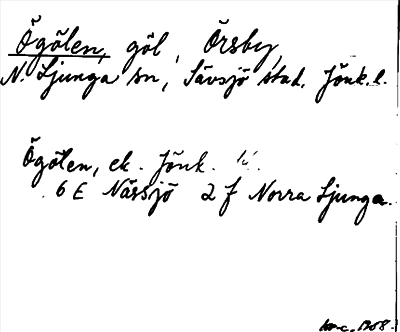 Ögölen, göl, Örsby,
N. Ljunga sn, Sävsjö stad. Jönk. l.
Ögölen, ek. Jönk.
6 E Nässjö 2 f Norra Ljunga.